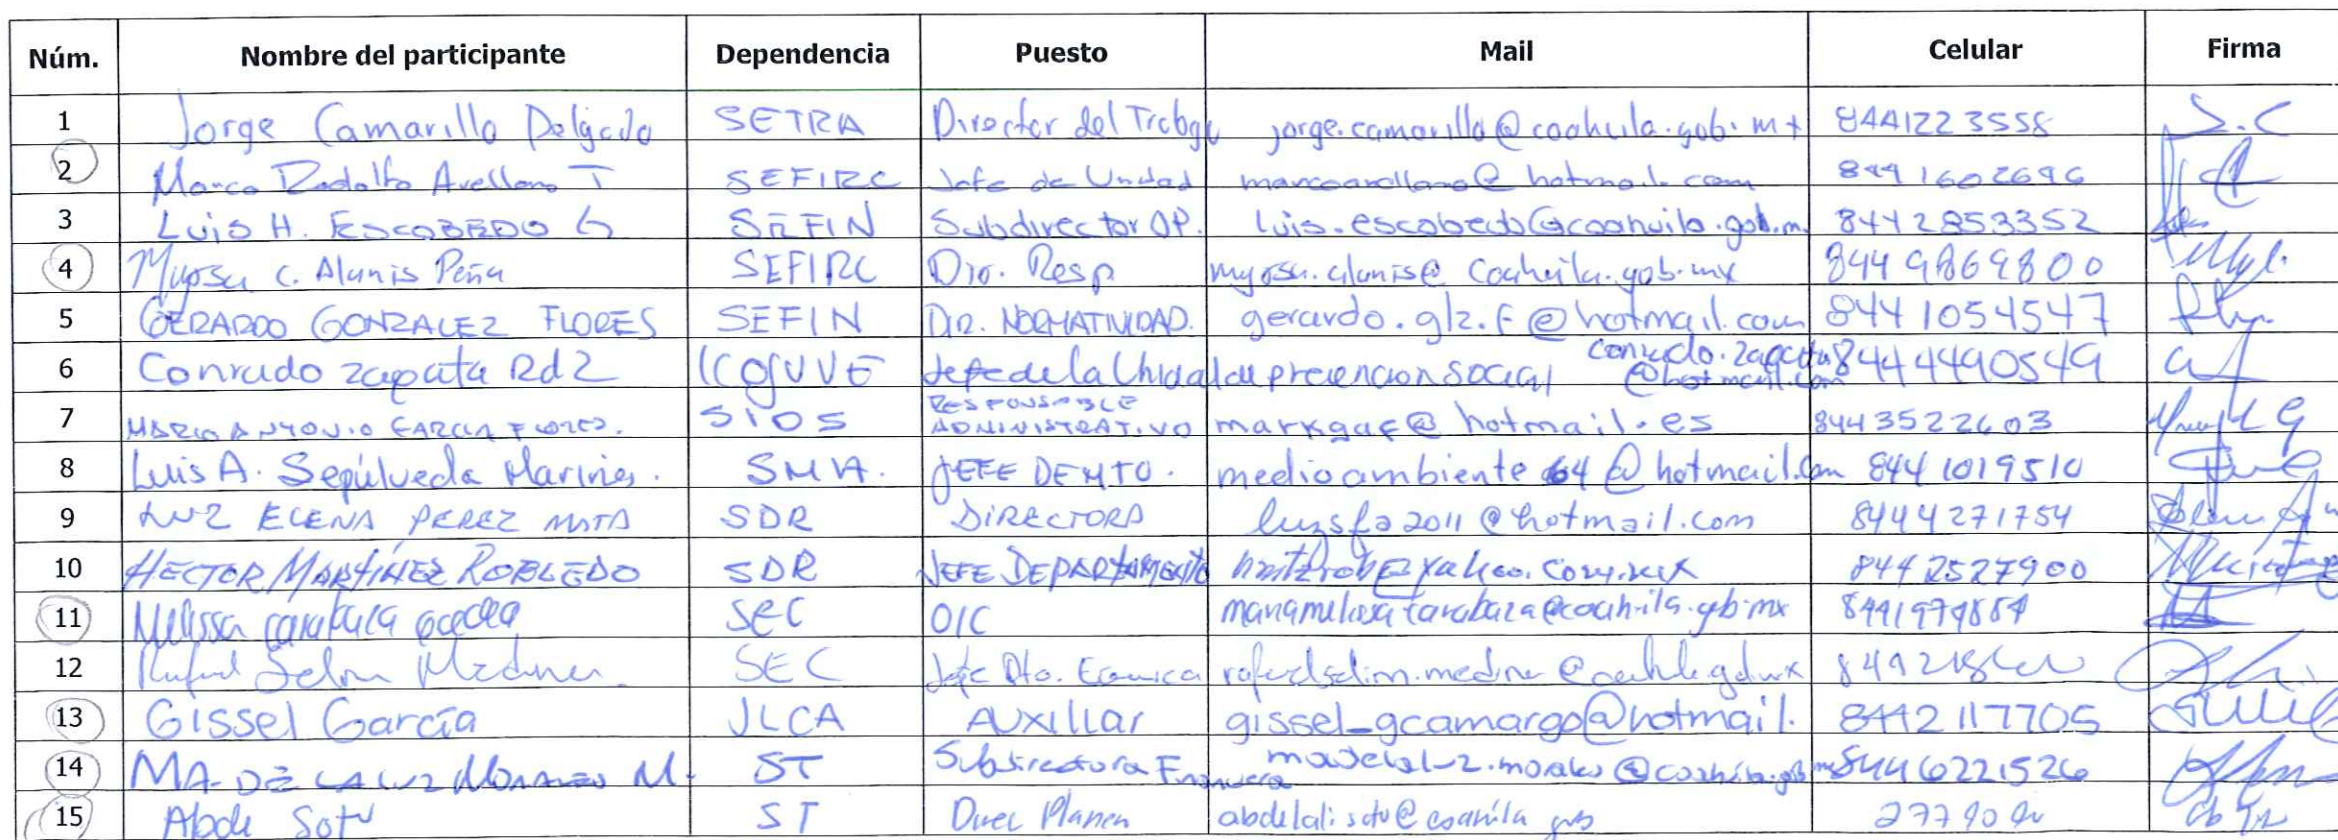 Núm. Nombre del participante Dependencia Puesto Mail Celular Firma
1 Jorge Camarillo Delgado SETRA Director del Trabajo jorge.camarillo@coahuila.gob.mx 8441223558 J.C
2 Marco Rodolfo Avellano T SEFIRC Jefe de Unidad marcoarellano@hotmail.com 8441602696
3 Luis H. ESCOBEDO G SEFIN Subdirector OP. luis.escobedo@coahuila.gob.m 8442853352
4 Myrsa C. Alanis Peña SEFIRC Dir. Resp myrsa.alanis@coahuila.gob.mx 8449869800
5 GERARDO GONZALEZ FLORES SEFIN DIR. NORMATIVIDAD. gerardo.glz.f@hotmail.com 8441054547
6 Conrado zapata Rdz ICOJUVE Jefe de la Unidad de prevencion social conrado.zapata@hotmail.com 8444490549
7 MARIO ANTONIO GARCIA FLORES. SIDS RESPONSABLE ADMINISTRATIVO markgaf@hotmail.es 8443522603
8 Luis A. Sepúlveda Marines. SMA. JEFE DEMTO. medioambiente64@hotmail.com 8441019510
9 LUZ ELENA PEREZ MATA SDR DIRECTORA luzsfa2011@hotmail.com 8444271754
10 HECTOR MARTÍNEZ ROBLEDO SDR JEFE DEPARTAMENTO 8442527900
11 Melissa SEC OIC
12 Rafael Selim Medina SEC Jefe Dto. rafaelselim.medina@
13 Gissel García JLCA Auxiliar gissel_gcamargo@hotmail. 8442117705
14 MA. DE LA LUZ MORALES M. ST Subdirectora Financiera 8446221526
15 Abde Soto ST